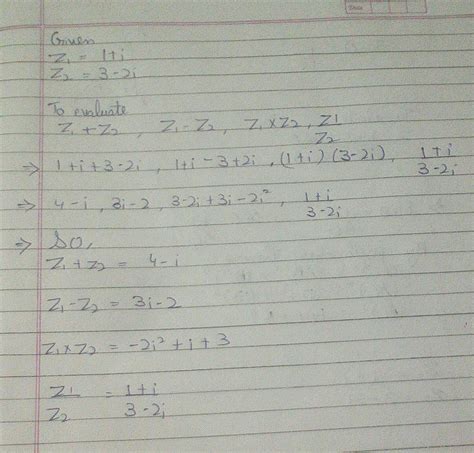 Date
Given
Z₁ = 1+i
Z₂ = 3-2i
To evaluate
Z₁ + Z₂ , Z₁ - Z₂ , Z₁ × Z₂ , Z1/Z₂
⇒ 1+i+3-2i , 1+i-3+2i , (1+i) (3-2i) , 1+i/3-2i
⇒ 4-i , 3i-2 , 3-2i+3i-2i² , 1+i/3-2i
⇒ SO,
Z₁ + Z₂ = 4-i
Z₁ - Z₂ = 3i-2
Z₁ × Z₂ = -2i² + i + 3
Z1/Z₂ = 1+i/3-2i